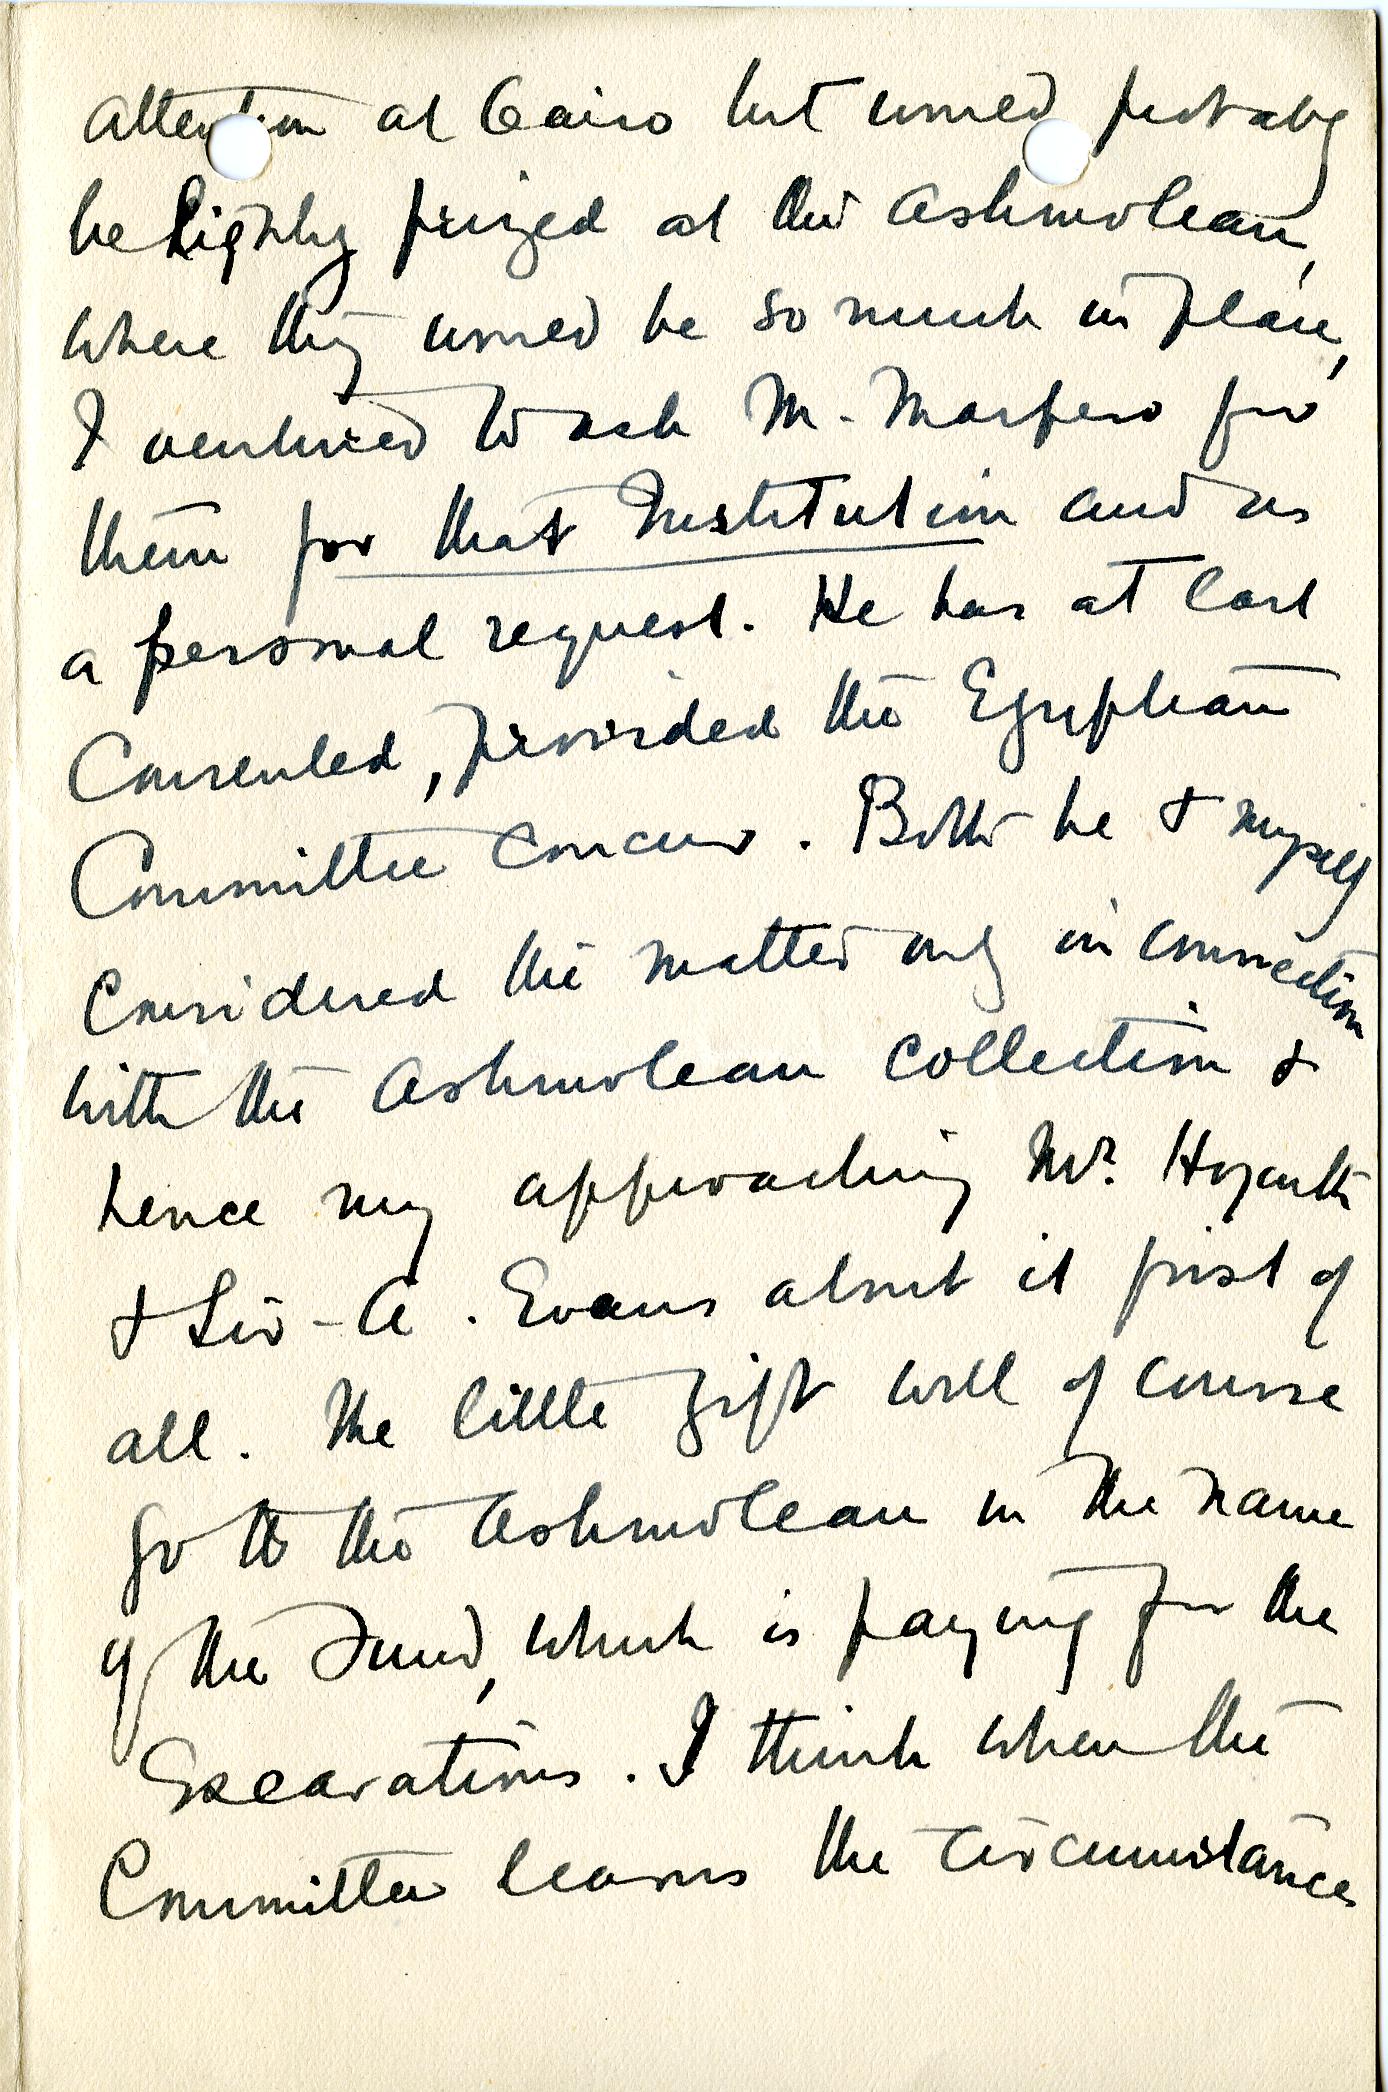 attention at Cairo but would probably
be highly prized at the Ashmolean,
where they would be so much in place,
I ventured to ask M. Maspero for
them for that Institution and as
a personal request. He has at last
Consented, provided the Egyptian
Committee concur. Both he & myself
Considered the matter only in connection
with the Ashmolean Collection &
hence my approaching Mr. Hogarth
& Sir - A. Evans about it first of
all. The little gift will of course
go to the Ashmolean in the name
of the Fund, which is paying for the
Excavations. I think when the
Committee learns the circumstances